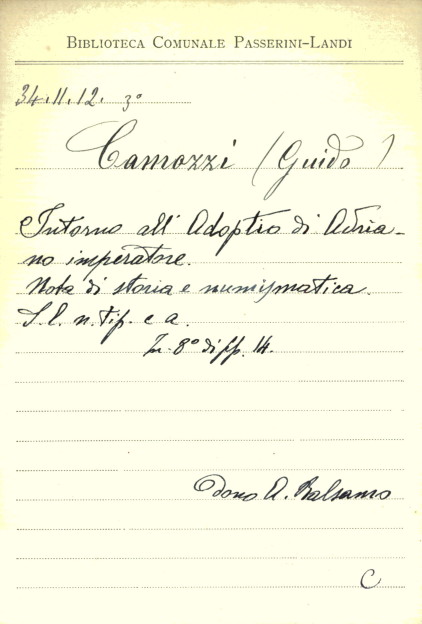 BIBLIOTECA COMUNALE PASSERINI-LANDI
34.11.12. 3°
Camozzi (Guido)
Intorno all' Adoptio di Adria-
no imperatore.
Nota di storia e numismatica.
S. l. n. tip. e a.
In 8° di pp. 14.
Dono A. Balsamo
C